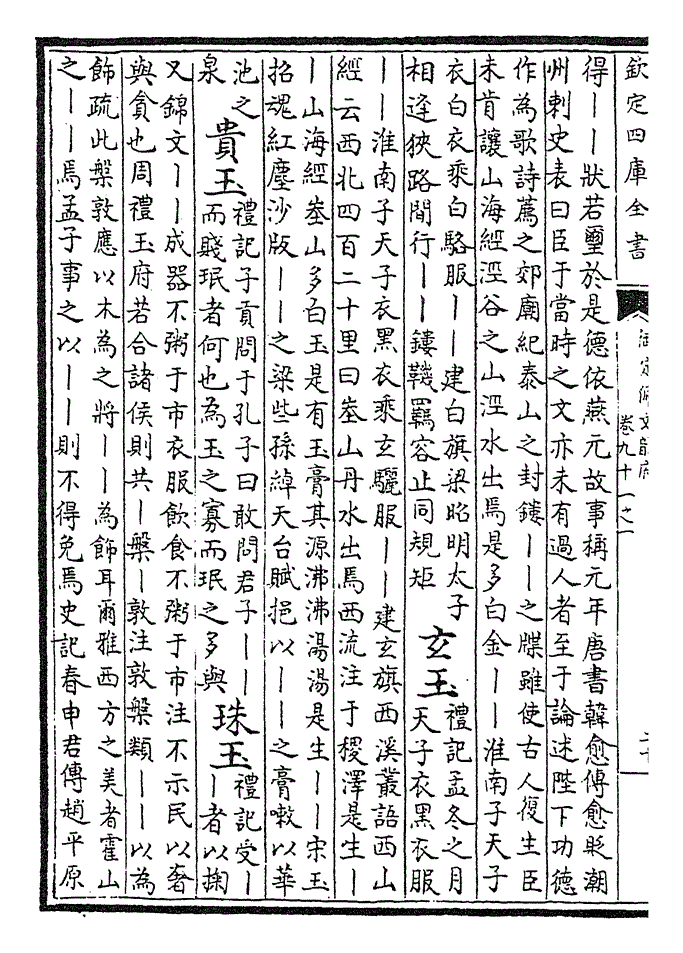 欽定四庫全書
卷九十
得丨丨狀若璽於是德依燕元故事稱元年唐書韓愈傳愈貶潮
州刺史表曰臣于當時之文亦未有過人者至于論述陛下功德
作為歌詩薦之郊廟紀泰山之封鏤丨丨之牒雖使古人復生臣
未肯讓山海經涇谷之山涇水出焉是多白金丨丨淮南子天子
衣白衣乘白駱服丨丨建白旗梁昭明太子
相逢狹路間行丨丨鏤鞿羈容止同規矩
玄玉
禮記孟冬之月
天子衣黑衣服
丨丨淮南子天子衣黑衣乘玄驪服丨丨建玄旗西溪叢語西山
經云西北四百二十里曰峚山丹水出焉西流注于稷澤是生丨
丨山海經峚山多白玉是有玉膏其源沸沸湯湯是生丨丨宋玉
招魂紅塵沙版丨丨之梁些孫綽天台賦挹以丨丨之膏嗽以華
池之
泉
貴玉
禮記子貢問于孔子曰敢問君子丨丨
而賤珉者何也為玉之寡而珉之多與
珠玉
禮記受丨
丨者以掬
又錦文丨丨成器不粥于市衣服飲食不粥于市注不示民以奢
與貪也周禮玉府若合諸侯則共丨槃丨敦注敦槃類丨丨以為
飾疏此槃敦應以木為之將丨丨為飾耳爾雅西方之美者霍山
之丨丨焉孟子事之以丨丨則不得免焉史記春申君傳趙平原